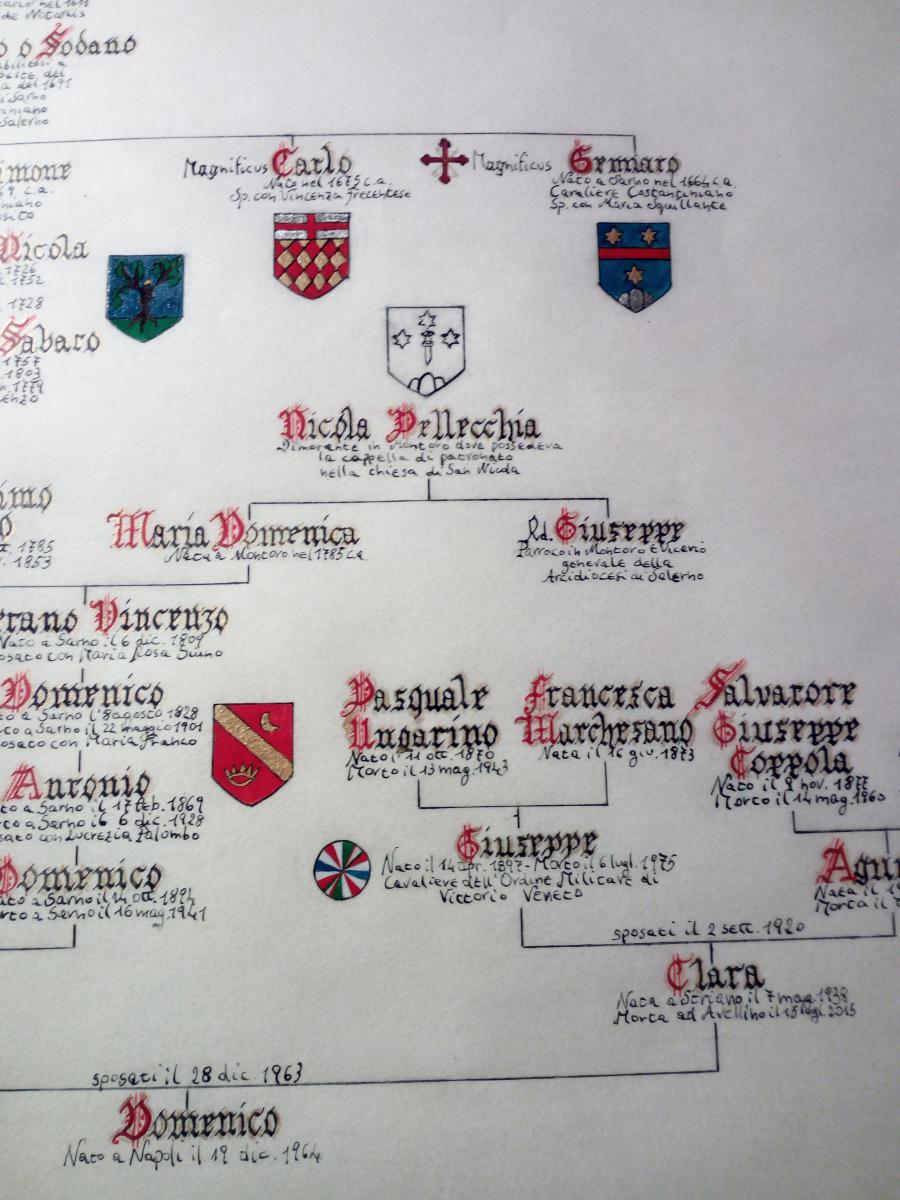 de Notariis
o o Sodano
del 1691
di Sarno
Salerno
Magnificus Carlo
Nato nel 1675 c.a.
Sp. con Vincenza
Magnificus Gennaro
Nato a Sarno nel 1664 c.a.
Cavaliere Costantiniano
Sp. con Maria Squillante
imone
9 c.a.
niano
osito
Nicola
1726
1752
1728
Sabato
1757
1803
1779
enzo
Nicola Pellecchia
Dimorante in Montoro dove possedeva
la cappella di patronato
nella chiesa di San Nicola
imo
o
1785
1853
Maria Domenica
Nata a Montoro nel 1785 c.a.
Rd. Giuseppe
Parroco in Montoro e Vicario
generale della
Arcidiocesi di Salerno
etano Vincenzo
Nato a Sarno il 6 dic. 1809
osato con Maria Rosa
Domenico
to a Sarno l'8 agosto 1828
rto a Sarno il 22 maggio 1901
osato con Maria Franco
Antonio
to a Sarno il 17 feb. 1869
rto a Sarno il 6 dic. 1928
sato con Lucrezia Palumbo
Domenico
ato a Sarno il 14 ott. 1894
orto a Sarno il 16 mag. 1941
Pasquale
Ungarino
Nato l'11 ott. 1870
Morto il 13 mag. 1943
Francesca
Marchesano
Nata il 16 giu. 1873
Salvatore
Giuseppe
Coppola
Nato il 9 nov. 1877
Morto il 14 mag. 1960
Giuseppe
Nato il 14 apr. 1897 - Morto il 6 lugl. 1975
Cavaliere dell'Ordine Militare di
Vittorio Veneto
Agn
Nata il 1
Morta il
sposati il 2 sett. 1920
Clara
Nata a Striano il 7 mag. 1938
Morta ad Avellino il 15 lugl. 2015
sposati il 28 dic. 1963
Domenico
Nato a Napoli il 19 dic. 1964